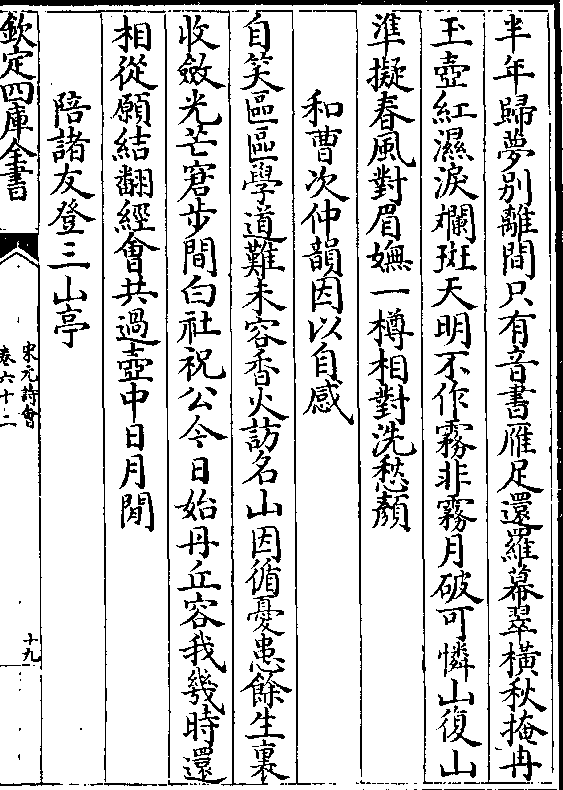 半年歸夢别離間只有音書雁足還羅幕翠橫秋掩冉
玉壺紅濕淚斕斑天明不作霧非霧月破可憐山復山
準擬春風對眉嫵一樽相對洗愁顔
和曹次仲韻因以自感
自笑區區學道難未容香火訪名山因循憂患餘生裏
收斂光芒窘步間白社祝公今日始丹丘容我幾時還
相從願結翻經會共過壺中日月閒
陪諸友登三山亭
欽定四庫全書
宋元詩會
卷六十二
十九